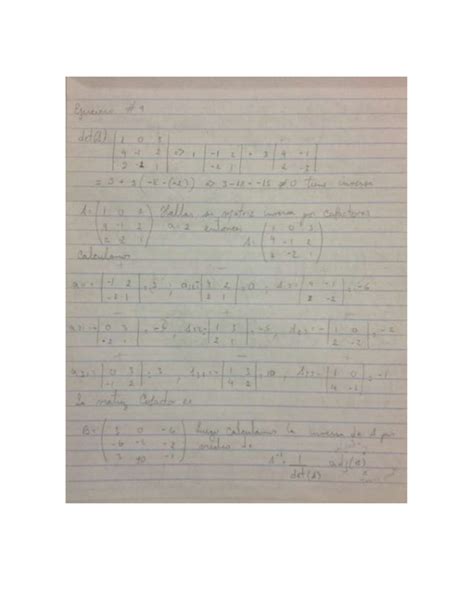 Ejercicio # 9
det(A) | 1 0 3 | 4 -1 2 | 2 -2 1 | => 1 | -1 2 | -2 1 | + 3 | 4 -1 | 2 -2 |
= 3 + 3 (-8 - (-2)) => 3 - 18 = -15 ≠ 0 tiene inversa
A = ( 1 0 3 | 4 -1 2 | 2 -2 1 ) Hallar su matriz inversa por cofactores
a = 2 entonces A = ( 1 0 3 | 4 -1 2 | 2 -2 1 )
Calculamos
| -1 2 | -2 1 | = 3 , | 4 2 | 2 1 | = 0 , | 4 -1 | 2 -2 | = -6
| 0 3 | -2 1 | = -6 , | 1 3 | 2 1 | = -5 , - | 1 0 | 2 -2 | = -2
| 0 3 | -1 2 | = 3 , - | 1 3 | 4 2 | = 10 , | 1 0 | 4 -1 | = -1
La matriz Cofactor es
B = ( 3 0 -6 | -6 -5 -2 | 3 10 -1 ) luego calculamos la inversa de A por
medio de
A⁻¹ = 1 / det(A) adj(A)